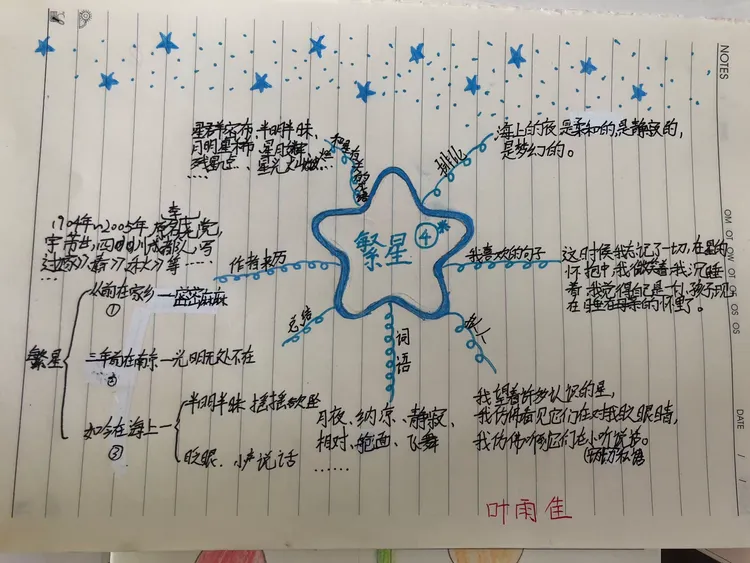 NOTES
星罗密布、半明半昧、
月明星稀、星月
残星
......
和星有关的成语
排比
海上的夜是柔和的,是静寂的,
是梦幻的。
繁星
④*
李
1904年~2005年
字芾甘,四川成都人,写
过《家》《春》《秋》等......
作者来历
我喜欢的句子
这时候我忘记了一切,在星的
怀抱中我微笑着我沉睡
着,我觉得自己是一个小孩子,现
在睡在母亲的怀里了。
总结
繁星
从前在家乡一密密麻麻
①
三年前在南京一光明无处不在
②
如今在海上一
③
半明半昧 摇摇欲坠
眨眼、小声说话
词语
月夜、纳凉、静寂、
相对、舱面、飞舞
......
我望着许多认识的星,
我仿佛看见它们在对我眨眼睛,
我仿佛听见它们在小声说话。
叶雨佳
DATE
/ /